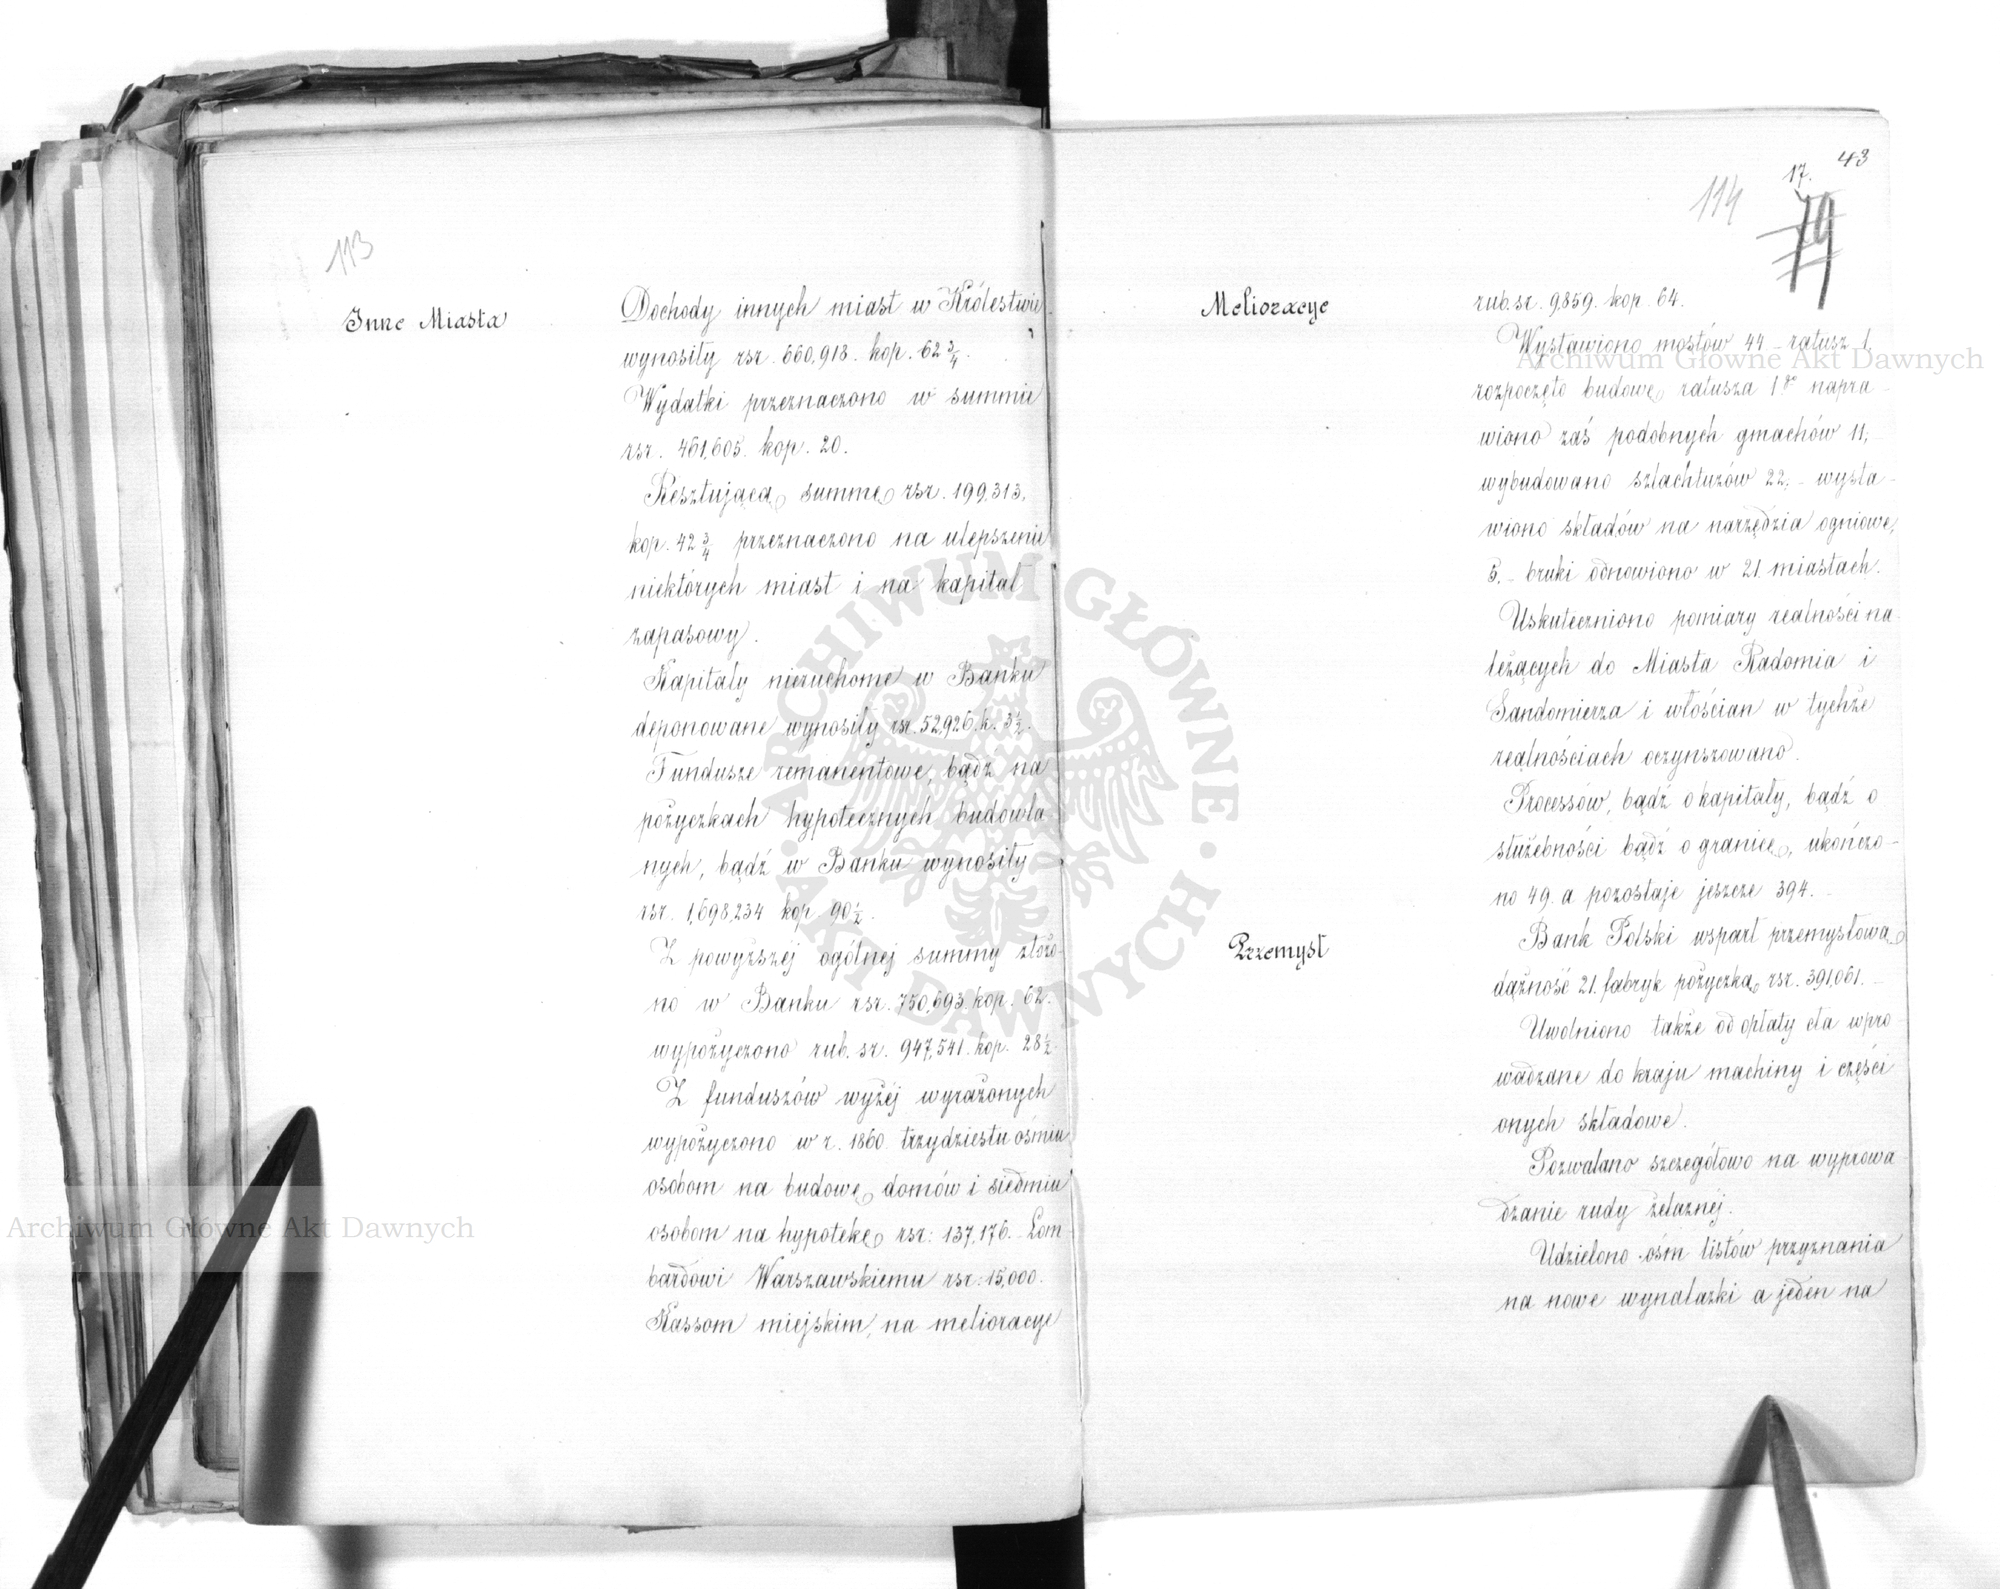 113
Inne Miasta
Dochody innych miast w Królestwie
wynosiły rsr. 660,918. kop. 62 3/4.
Wydatki przeznaczono w summie
rsr. 461,605. kop. 20.
Resztującą summę rsr. 199,313,
kop. 42 3/4 przeznaczono na ulepszenie
niektórych miast i na kapitał
zapasowy.
Kapitały nieruchome w Banku
deponowane wynosiły rsr. 52,926. k. 3 1/2.
Fundusze remanentowe, bądź na
pożyczkach hypotecznych budowla
nych, bądź w Banku wynosiły
rsr. 1,698,234 kop. 90 1/2.
Z powyższéj ogólnej summy złożo-
no w Banku rsr. 750,693. kop. 62.
wypożyczono rub. sr. 947,541. kop. 28 1/2.
Z funduszów wyżéj wyrażonych
wypożyczono w r. 1860. trzydziestu ośmiu
osobom na budowę domów i siedmiu
osobom na hypotekę rsr: 137,176. - Lom
bardowi Warszawskiemu rsr: 15,000.
Kassom miejskim, na melioracye
43
17.
114
79
Melioracye
rub. sr. 9,859. kop. 64.
Wystawiono mostów 44 - ratusz 1.
rozpoczęto budowę ratusza 1go napra-
wiono zaś podobnych gmachów 11;
wybudowano szlachtuzów 22; - wysta-
wiono składów na narzędzia ogniowe,
5. - bruki odnowiono w 21. miastach.
Uskuteczniono pomiary realności na
leżących do Miasta Radomia i
Sandomierza i włościan w tychże
realnościach oczynszowano.
Processów, bądź o kapitały, bądź o
służebności bądź o granicę, ukończo-
no 49. a pozostaje jeszcze 394. -
Przemysł
Bank Polski wsparł przemysłową
dążność 21. fabryk pożyczką rsr. 391,061. -
Uwolniono także od opłaty cła wpro-
wadzane do kraju machiny i części
onych składowe.
Pozwalano szczegółowo na wyprowa-
dzanie rudy żelaznéj.
Udzielono ośm listów przyznania
na nowe wynalazki a jeden na
Archiwum Główne Akt Dawnych
Archiwum Główne Akt Dawnych
ARCHIWUM GŁÓWNE · AKT DAWNYCH ·